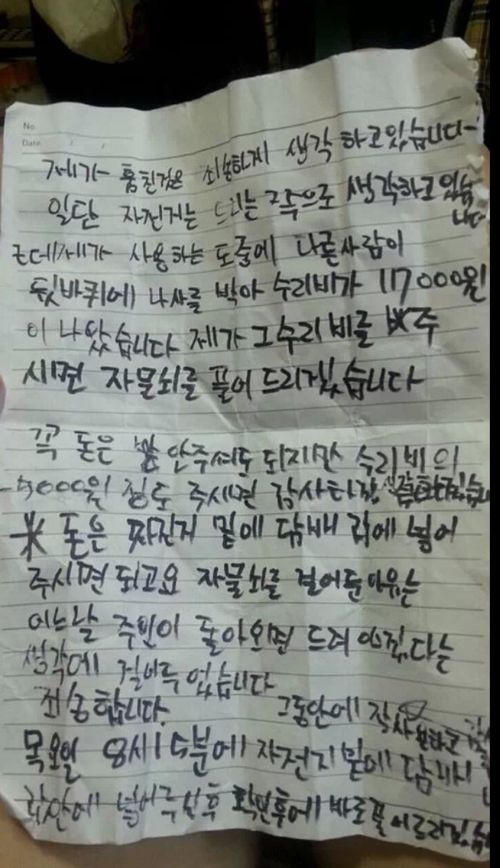 No.
Date
제가 훔친것은 죄송하게 생각 하고있습니다
일단 자전거는 드리는 쪽으로 생각하고 있습
니다
근데 제가 사용하는 도중에 나쁜사람이
뒷바퀴에 나사를 박아 수리비가 17000원
이 나왔습니다 제가 그 수리비를 주
시면 자물쇠를 풀어 드리겠습니다
꼭 돈은 안주셔도 되지만 수리비의
5000원 정도 주시면 감사
* 돈은 짜진거 밑에 담배 곽에 넣어
주시면 되고요 자물쇠를 걸어둔 이유는
어느날 주인이 돌아오면 드려야겠다는
생각에 걸어두었습니다
죄송합니다. 그동안에
목요일 8시 15분에 자전거 밑에 담배
안에 넣어주신후 확인후에 바로풀어드리겠습